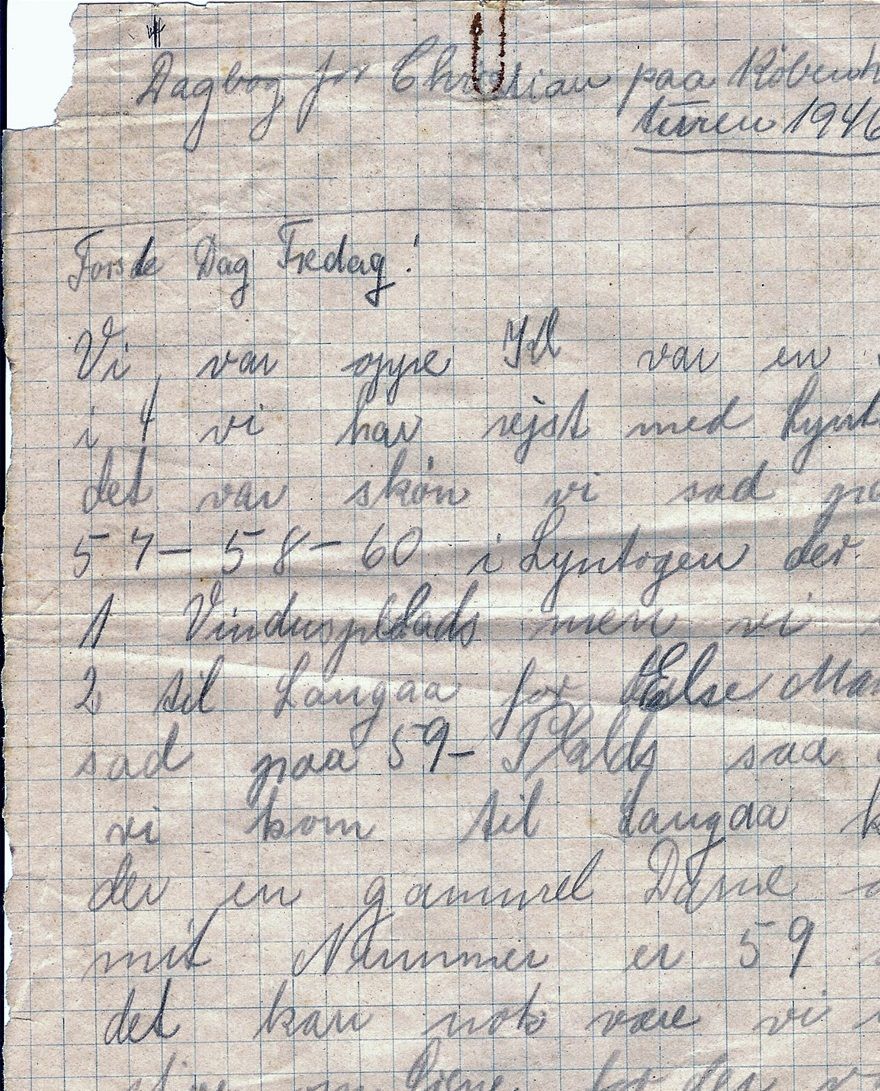 Dagbog for Christian paa Københ
turen 1946
Første Dag Fredag!
Vi var oppe Kl var en
i 4 vi har rejst med Lynt
det var skøn vi sad pa
57-58-60 i Lyntogen der
1 Vinduspllads men vi
2 til Langaa for Else Mar
sad paa 59- Plads saa
vi kom til Langaa k
der en gammel Dame
mit Nummer er 59
det kan nok være vi